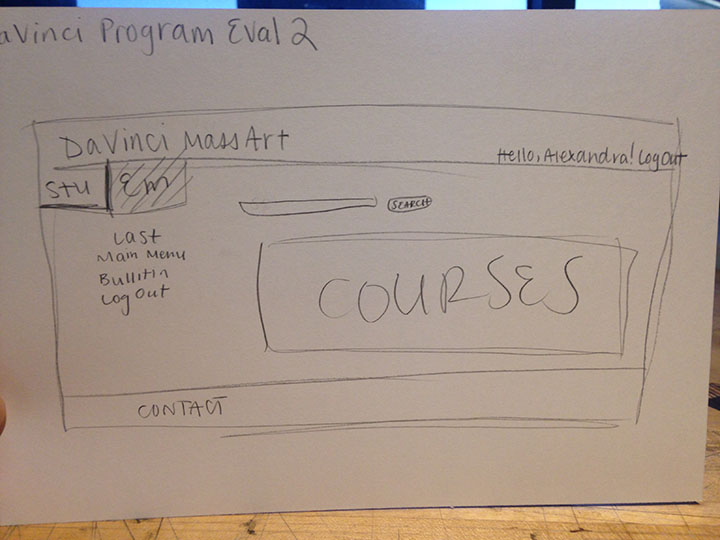 aVinci Program Eval 2
DaVinci MassArt
Hello, Alexandra! LogOut
Stu
Em
SEARCH
Last
Main Menu
Bullitin
Log Out
COURSES
CONTACT